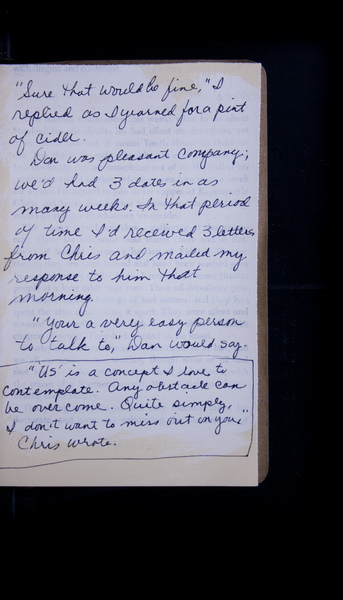 "Sure that would be fine," I
replied as I yearned for a pint
of cider.
Dan was pleasant company;
we'd had 3 dates in as
many weeks. In that period
of time I'd received 3 letters
from Chris and mailed my
response to him that
morning.
"Your a very easy person
to talk to," Dan would say.
"'US' is a concept I love to
contemplate. Any obstacle can
be over come. Quite simply,
I don't want to miss out on you,"
Chris wrote.